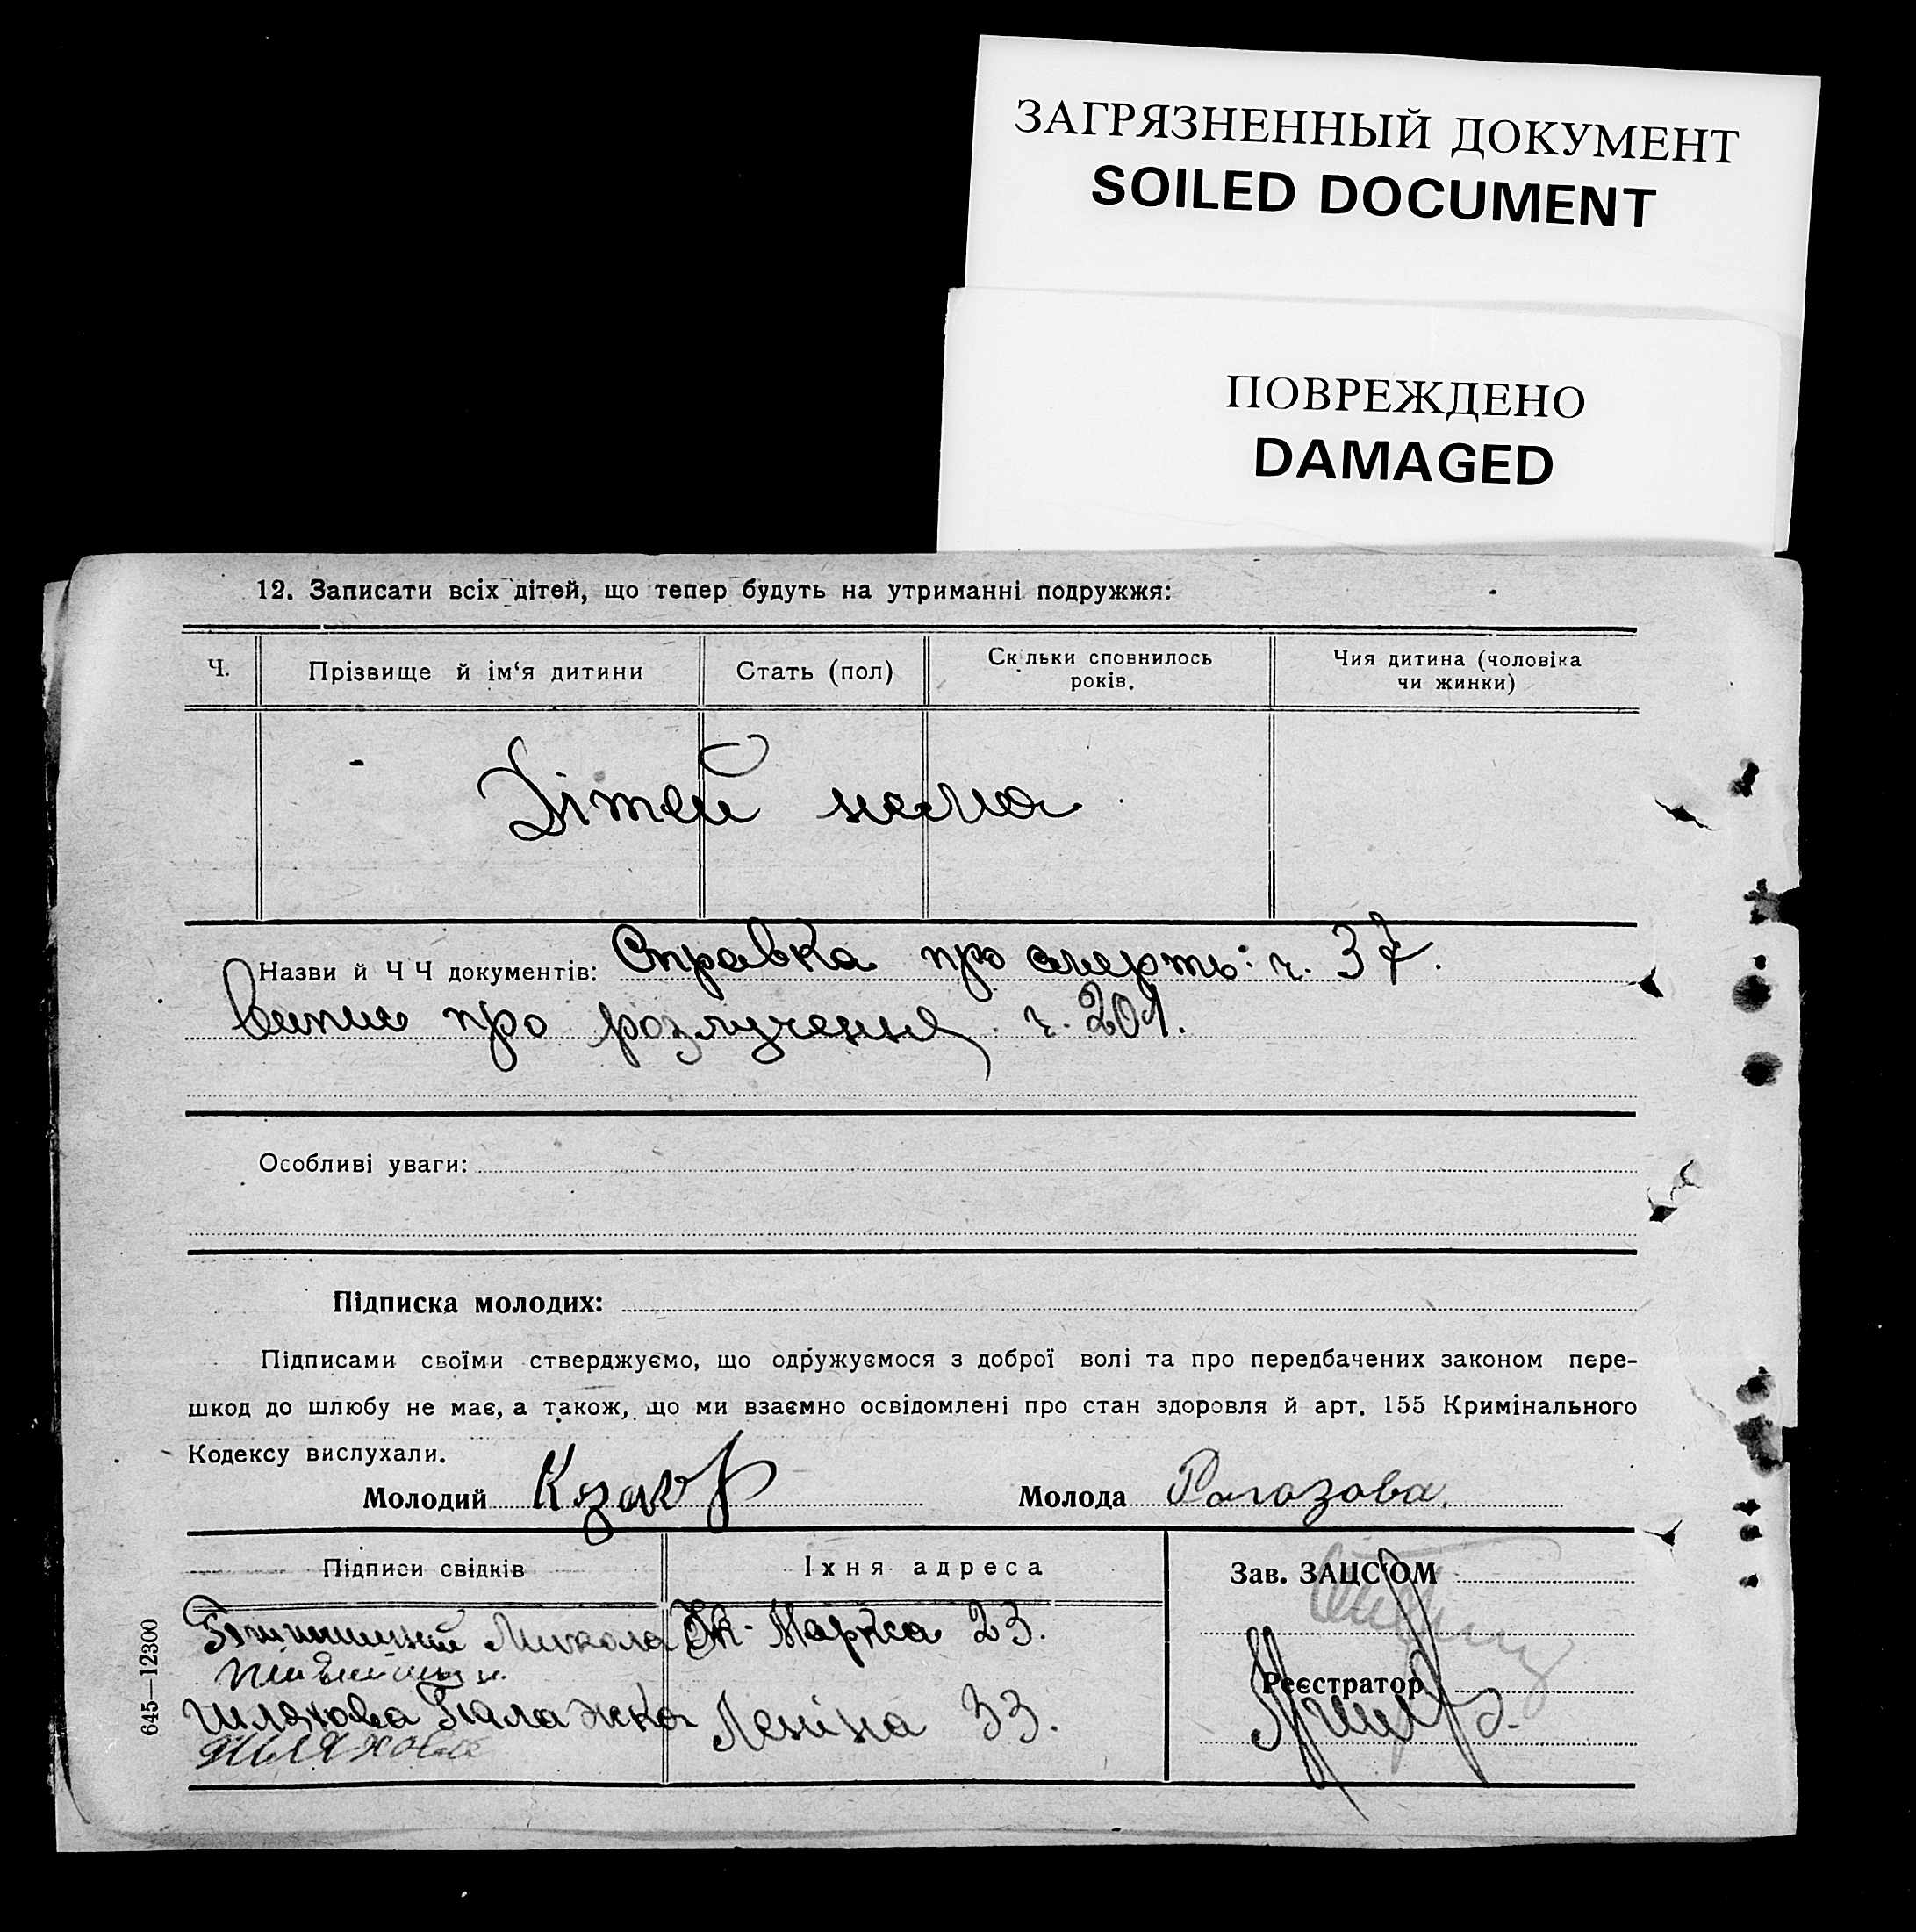 ЗАГРЯЗНЕННЫЙ ДОКУМЕНТ
SOILED DOCUMENT
ПОВРЕЖДЕНО
DAMAGED
12. Записати всіх дітей, що тепер будуть на утриманні подружжя:
Ч. Прізвище й ім‘я дитини Стать (пол) Скільки сповнилось років. Чия дитина (чоловіка чи жинки)
Дітей нема
Назви й Ч Ч документів: Справка про смерть: ч. 37.
Випис про розлучення ч. 201.
Особливі уваги:
Підписка молодих:
Підписами своїми стверджуємо, що одружуємося з доброї волі та про передбачених законом пере-
шкод до шлюбу не має, а також, що ми взаємно освідомлені про стан здоровля й арт. 155 Кримінального
Кодексу вислухали.
Молодий Молода Рагозова.
Підписи свідків Їхня адреса Зав. ЗАЦС'ОМ
Микола К. Маркса 23.
Реєстратор
Шляхова Палажка Леніна 33.
Шляхова
645—12300